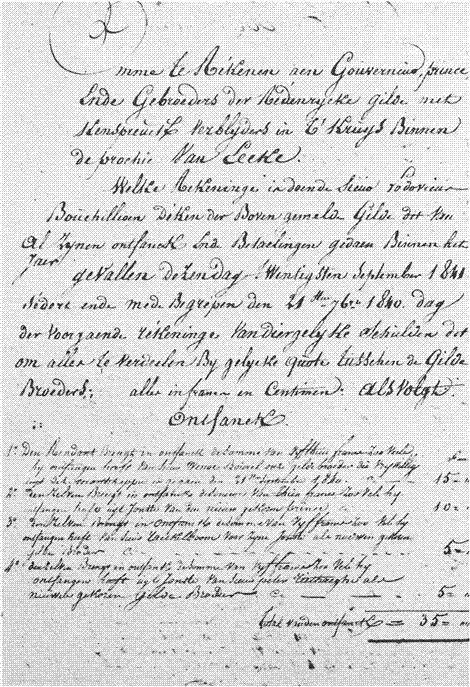 Omme te Rékenen aen Gouverneur, prince,
Ende Gebroeders der Redenrycke gilde met
Kenspreuck Verblyders in t' Kruys Binnen
de prochie Van Lecke.
Welke Rekeninge is doende Sieur
Bouchillioen Deken der Boven gemelde Gilde dot Van
Al Zynen ontfanck End Betaelingen gedaen Binnen het
Jaer gevallen dezen dag twintigsten September 1841
ende med Begrepen den 21 7ber 1840. dag
der Voorgaende rékeninge Van diergelyke dit
om alles te verdeelen By gelycke quote tusschen de Gilde
Broeders: alles in francen en Centimen. Als Volgt.
Ontfanck.
1° Den Rendant Brengt in ontfanck de Somme van Vyfthien francs Zoo Vele
hy ontfangen heeft Van Sieur
21sten September 1840 15=
2° den Zelven Brengt in ontfanck de Somme van Thien francs Zoo Vele hy
ontfangen heeft uyt Jonste Van den nieuw gekozen prince 10=
3° den Zelven Brengt in Ontfanck de Somme Van Vyf francs Zoo Vele hy
ontfangen heeft Van Sieur Voor Zyne Jonste als nieuwen gekozen
gilde Broeder 5=
4° den Zelven Brengt in ontfanck de Somme van Vyf francs Zoo Vele hy
ontfangen heeft uyt Jonste Van Sieur pieter als
nieuwen gekozen Gilde Broeder 5=
Total Van den ontfanck = 35=